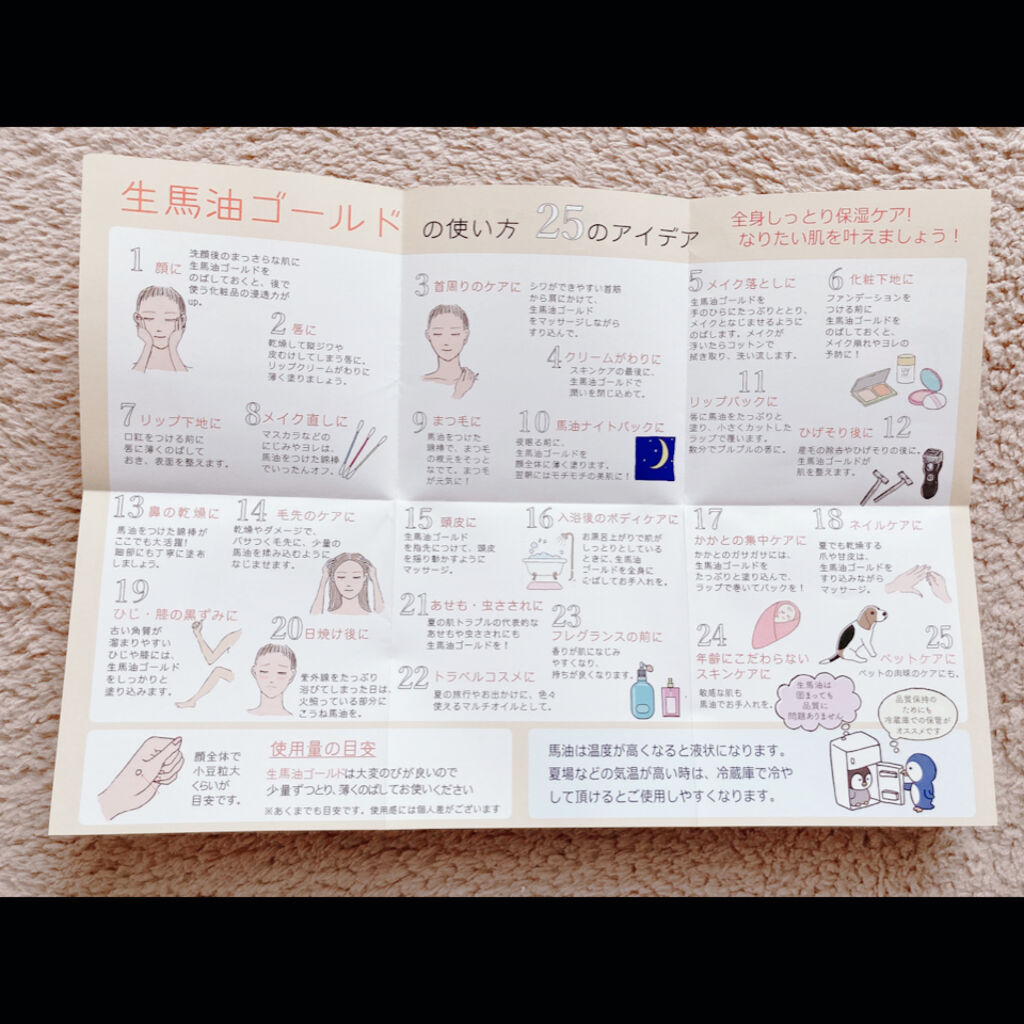 生馬油ゴールド の使い方 25のアイデア
全身しっとり保湿ケア!
なりたい肌を叶えましょう!
1 顔に
洗顔後のまっさらな肌に
生馬油ゴールドを
のばしておくと、後で
使う化粧品の浸透力が
up。
2 唇に
乾燥して縦ジワや
皮むけしてしまう唇に。
リップクリームがわりに
薄く塗りましょう。
3 首周りのケアに
シワができやすい首筋
から肩にかけて、
生馬油ゴールド
をマッサージしながら
すり込んで。
4 クリームがわりに
スキンケアの最後に、
生馬油ゴールドで
潤いを閉じ込めて。
5 メイク落としに
生馬油ゴールドを
手のひらにたっぷりととり、
メイクとなじませるように
のばします。メイクが
浮いたらコットンで
拭き取り、洗い流します。
6 化粧下地に
ファンデーションを
つける前に
生馬油ゴールドを
のばしておくと、
メイク崩れやヨレの
予防に!
7 リップ下地に
口紅をつける前に
唇に薄くのばして
おき、表面を整えます。
8 メイク直しに
マスカラなどの
にじみやヨレは、
馬油をつけた綿棒
でいったんオフ。
9 まつ毛に
馬油をつけた
綿棒で、まつ毛
の根元をそっと
なでて。まつ毛
が元気に!
10 馬油ナイトパックに
夜眠る前に、
生馬油ゴールドを
顔全体に薄く塗ります。
翌朝にはモチモチの美肌に!
11
リップパックに
唇に馬油をたっぷりと
塗り、小さくカットした
ラップで覆います。
数分でプルプルの唇に。
ひげそり後に 12
産毛の除去やひげそりの後に。
生馬油ゴールドが
肌を整えます。
13 鼻の乾燥に
馬油をつけた綿棒が
ここでも大活躍!
細部にも丁寧に塗布
しましょう。
14 毛先のケアに
乾燥やダメージで、
パサつく毛先に、少量の
馬油を揉み込むように
なじませます。
15 頭皮に
生馬油ゴールド
を指先につけて、頭皮
を揺り動かすように
マッサージ。
16 入浴後のボディケアに
お風呂上がりで肌が
しっとりとしている
ときに、生馬油
ゴールドを全身に
のばしてお手入れを。
17
かかとの集中ケアに
かかとのガサガサには、
生馬油ゴールドを
たっぷりと塗り込んで、
ラップで巻いてパックを!
18 ネイルケアに
夏でも乾燥する
爪や甘皮は、
生馬油ゴールドを
すり込みながら
マッサージ。
19
ひじ・膝の黒ずみに
古い角質が
溜まりやすい
ひじや膝には、
生馬油ゴールド
をしっかりと
塗り込みます。
20 日焼け後に
紫外線をたっぷり
浴びてしまった日は、
火照っている部分に
こうね馬油を。
21 あせも・虫さされに
夏の肌トラブルの代表的な
あせもや虫さされにも
生馬油ゴールドを!
22 トラベルコスメに
夏の旅行やお出かけに、色々
使えるマルチオイルとして。
23
フレグランスの前に
香りが肌になじみ
やすくなり、
持ちが良くなります。
24
年齢にこだわらない
スキンケアに
敏感な肌も
馬油でお手入れを。
25
ペットケアに
ペットの肉球のケアにも。
生馬油は
固まっても
品質に
問題ありません
品質保持の
ためにも
冷蔵庫での保管が
オススメです
顔全体で
小豆粒大
くらいが
目安です。
使用量の目安
生馬油ゴールドは大変のびが良いので
少量ずつとり、薄くのばしてお使いください
※あくまでも目安です。使用感には個人差がございます
馬油は温度が高くなると液状になります。
夏場などの気温が高い時は、冷蔵庫で冷や
して頂けるとご使用しやすくなります。